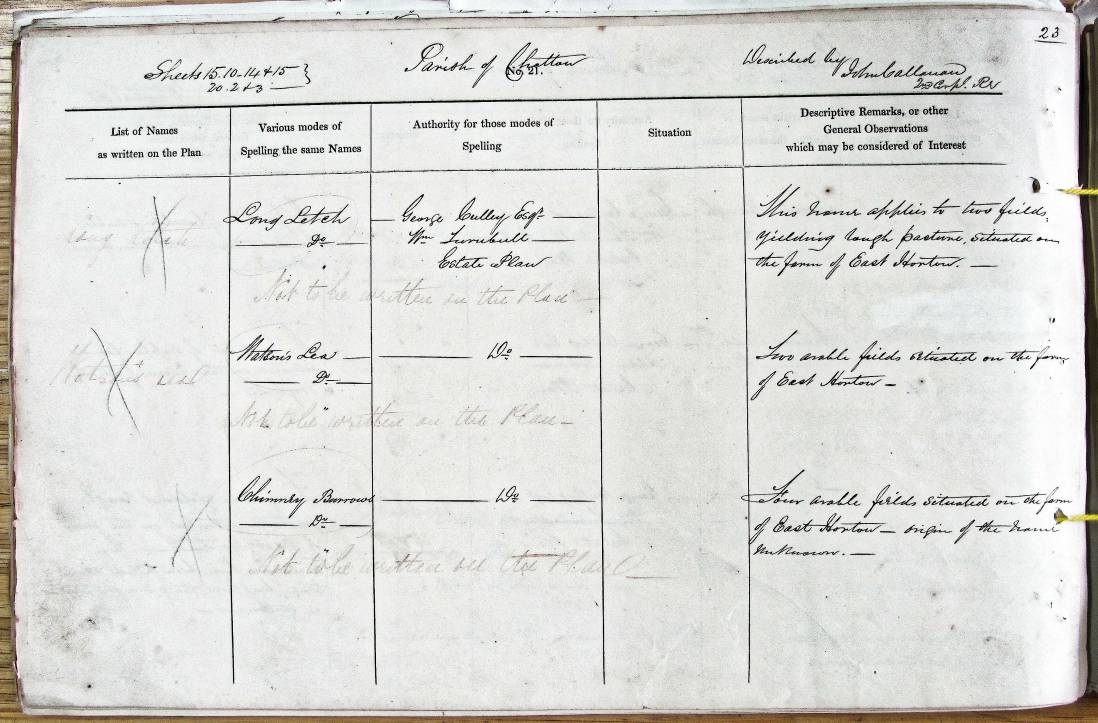 23
Sheets 15.10-14 & 15
20.2 & 3
Parish of Chatton
No 21.
Described by John Callanan
2nd Corpl. RE
List of Names
as written on the Plan
Various modes of
Spelling the same Names
Authority for those modes of
Spelling
Situation
Descriptive Remarks, or other
General Observations
which may be considered of Interest
Long Letch
Long Letch
Do
George Culley Esqr.
Wm Turnbull
Estate Plan
This name applies to two fields,
yielding rough pasture, situated on
the farm of East Horton.
Not to be written on the Plan
Watson's Lea
Watson's Lea
Do
Do
Two arable fields situated on the farm
of East Horton
Not to be written on the Plan
Chimney Burrows
Do
Do
Four arable fields situated on the farm
of East Horton - origin of the name
unknown.
Not to be written on the Plan